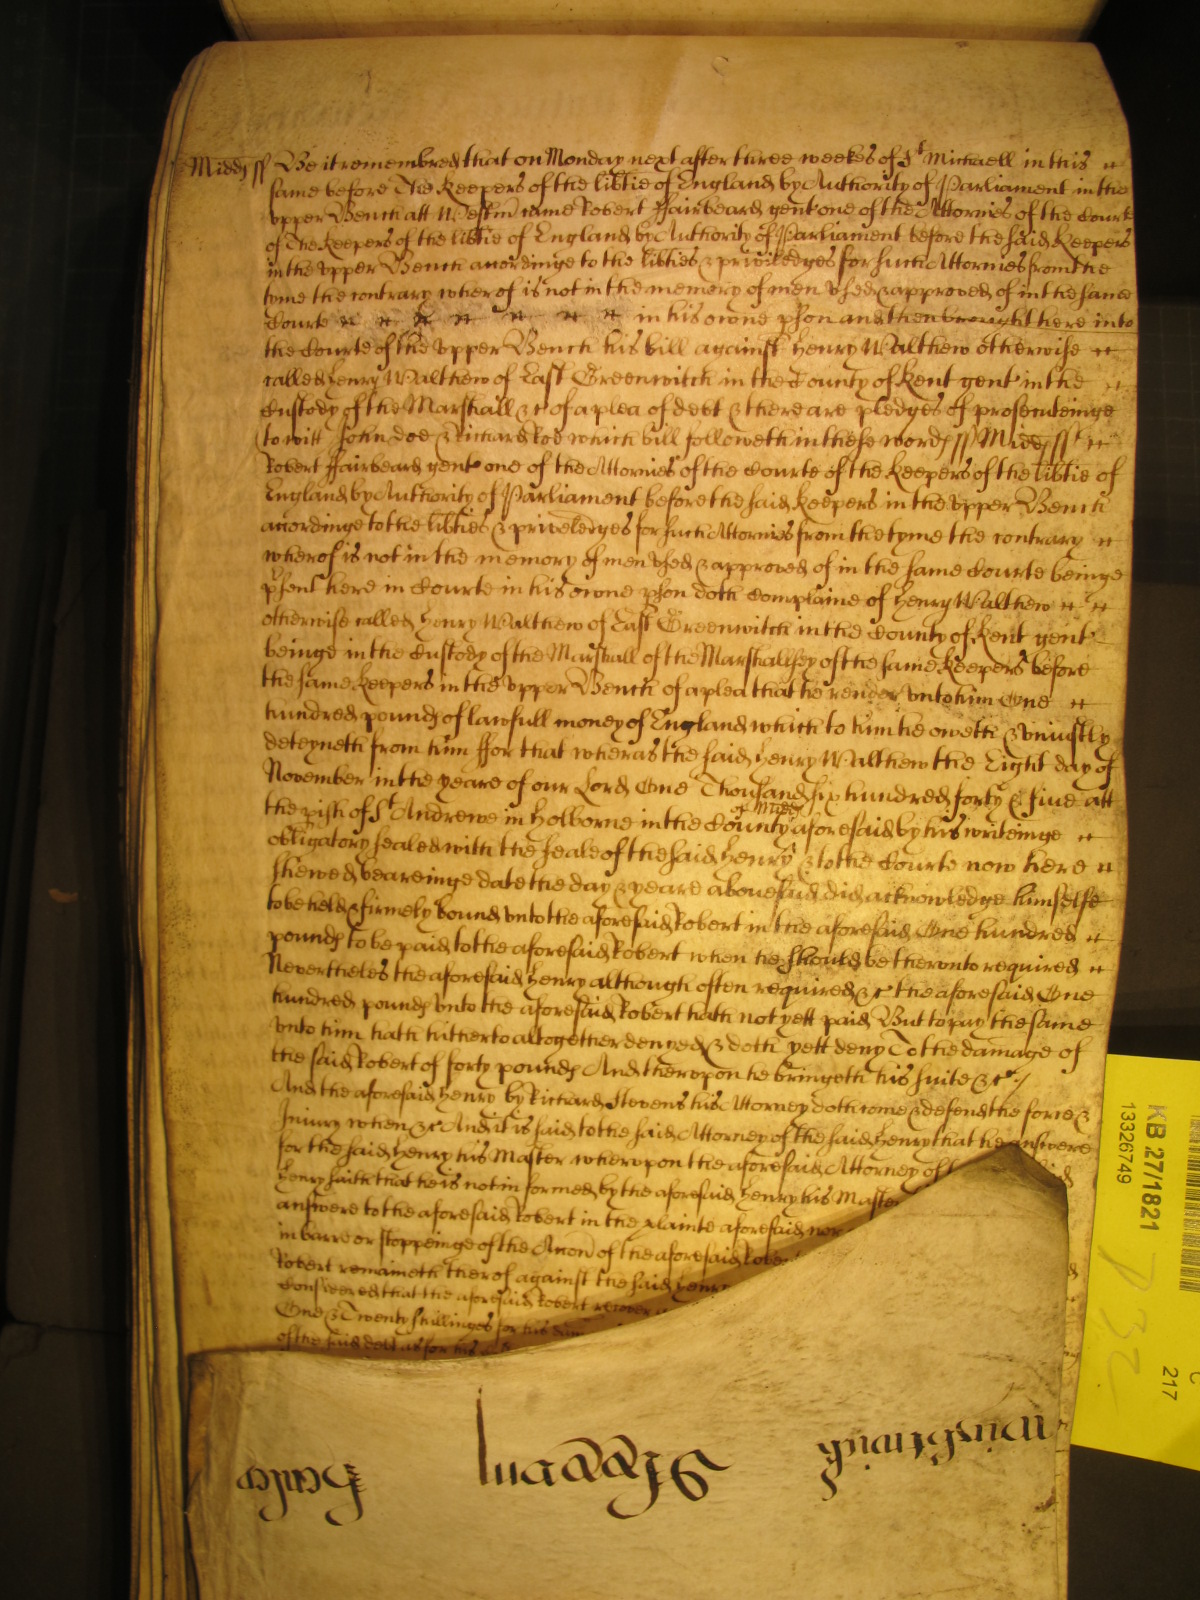 Midds ss Be it remembred that on Monday next after three weekes of St Michaell in this
same before The Keepers of the libtie of England by Authority of Parliament in the
upper Bench att Westm came Robert ffairbeard gent one of the Attornies of the Courte
of The Keepers of the libtie of England by Authority of Parliament before the said Keepers
in the upper Bench accordinge to the libties & priviledges for such Attornies from the
tyme the contrary wherof is not in the memory of men vsed & approved of in the same
Courte in his owne pson and then brought here into
the Courte of the vpper Bench his bill against Henry Walthew otherwise
called Henry Walthew of East Greenwitch in the County of Kent gent in the
Custody of the Marshall &c of a plea of debt & there are pledges of prosecuteinge
to witt John doe & Richard Roe which bill followeth in these words ss Midds ss
Robert ffairbeard gent one of the Attornies of the Courte of the Keepers of the libtie of
England by Authority of Parliament before the said Keepers in the vpper Bench
accordinge to the libties & priveledges for such Attornies from the tyme the contrary
wherof is not in the memory of men vsed & approved of in the same Courte beinge
psent here in Courte in his owne pson doth Complaine of Henry Walthew
otherwise called Henry Walthew of East Greenwitch in the County of Kent gent
beinge in the Custody of the Marshall of the Marshallsey of the same Keepers before
the same Keepers in the vpper Bench of a plea that he render vnto him One
hundred pounds of lawfull money of England which to him he oweth & vniustly
deteyneth from him ffor that wheras the said Henry Walthew the Eight day of
November in the yeare of our Lord One Thousand six hundred forty & five att
the pish of St Andrewe in Holborne in the County of Midds aforesaid by his writeinge
obligatory sealed with the seale of the said Henry & to the Courte now here
shewed beareinge date the day & yeare abouesaid did acknowledge himselfe
to be held & firmely bound vnto the aforesaid Robert in the aforesaid One hundred
pounds to be paid to the aforesaid Robert when he should be therevnto required
Neverthelesse the aforesaid Henry although often required &c the aforesaid One
hundred pounds vnto the aforesaid Robert hath not yett paid But to pay the same
vnto him hath hitherto altogether denyed & doth yett deny To the damage of
the said Robert of forty pounds And therevpon he bringeth his suite &c
And the aforesaid Henry by Richard Stevens his Attorney doth come & defend the force &
Iniury when &c And it is said to the said Attorney of the said Henry that he answere
for the said Henry his Master wherevpon the aforesaid Attorney of
Henry saith that he is not informed by the aforesaid Henry his Master
answere to the aforesaid Robert in the plainte aforesaid nor
in barre or stoppeinge of the Accon of the aforesaid Robert
Robert remaineth therof against the said Henry
Considered that the aforesaid Robert recover
One & Twenty shillinges for his dam
of the said debt as for his
KB 27/1821
13326749
217
P32